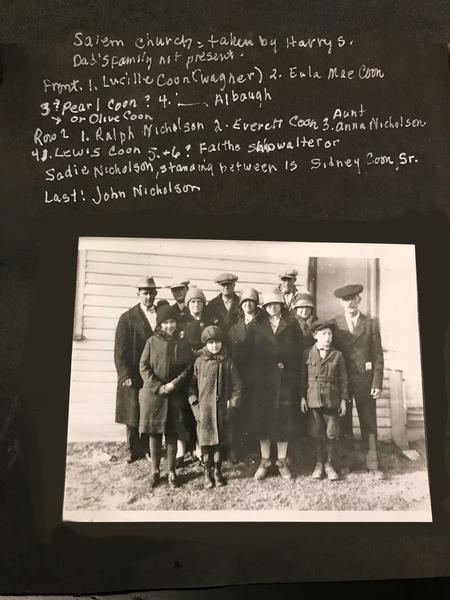 Salem Church - taken by Harry S.
Dad's family not present.
Front. 1. Lucille Coon (Wagner) 2. Eula Mae Coon
3? Pearl Coon? 4. ___ Albaugh
→ or Olive Coon
Row 2 1. Ralph Nicholson 2. Everett Coon 3. Aunt Anna Nicholson
4. Lewis Coon 5.+6? Faithe Showalter or
Sadie Nicholson, standing between is Sidney Coon, Sr.
Last: John Nicholson